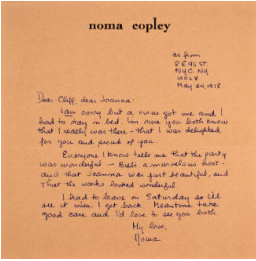 noma copley
as from
8 E 96 ST
NYC NY
10028
May 24, 1978
Dear Cliff, dear Joanna:
I am sorry but a virus got me and I
had to stay in bed. I'm sure you both know
that I really was there - that I was delighted
for you and proud of you.
Everyone I know tells me that the party
was wonderful - a marvelous host -
and that Joanna was just beautiful, and
that the works looked wonderful.
I had to leave on Saturday so I'll
see it when I get back. Meantime take
good care and I'd love to see you both
My love,
Noma